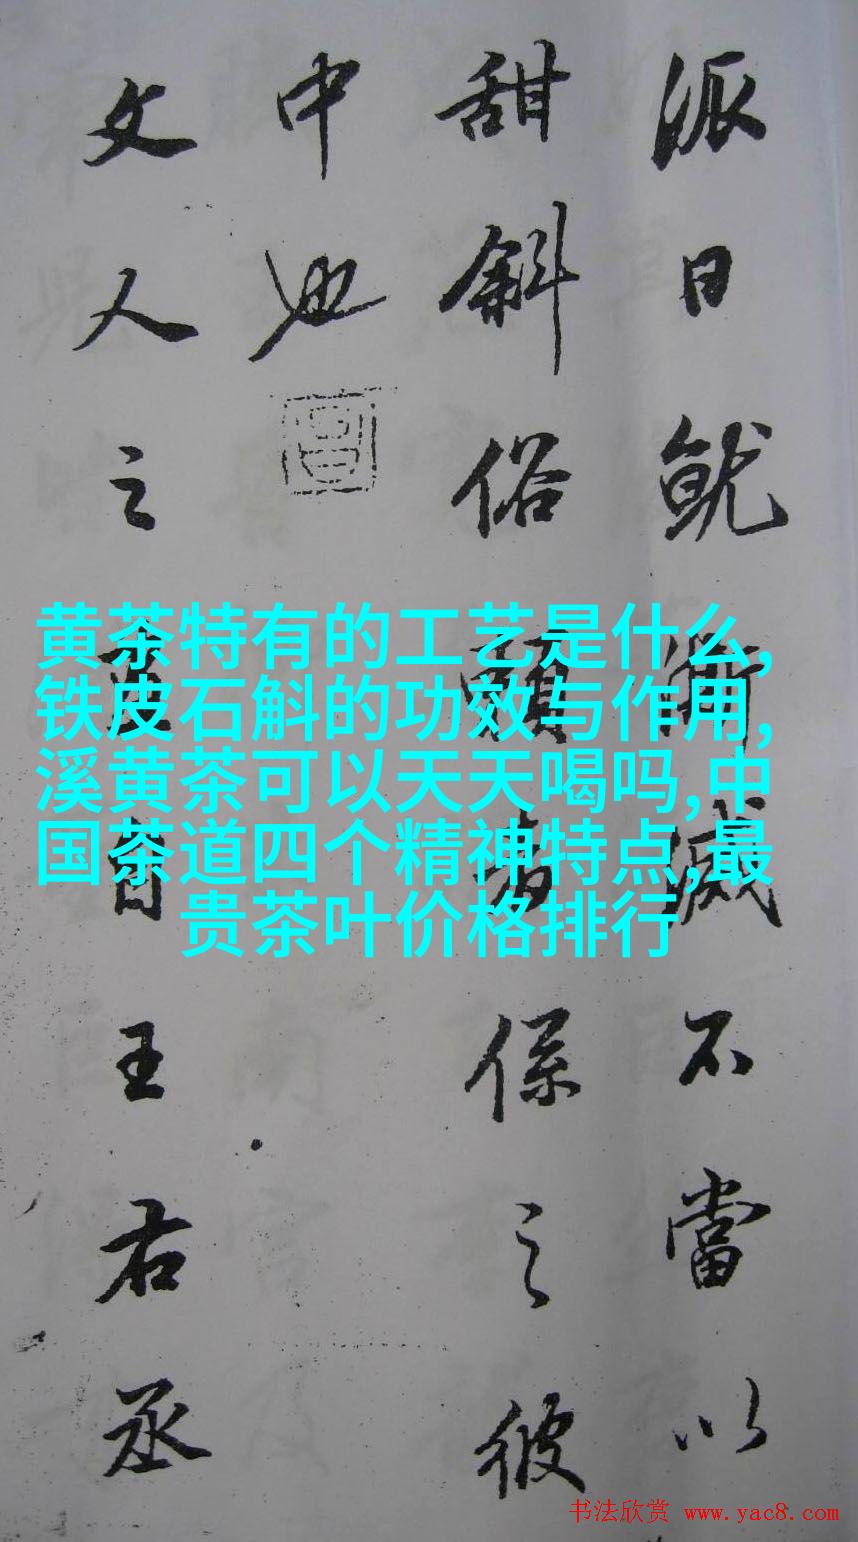 派日就漸滅不當以
甜斜俗賴者係之彼
中也
文人之畫自王右丞
黄茶特有的工艺是什么,
铁皮石斛的功效与作用,
溪黄茶可以天天喝吗,中
国茶道四个精神特点,最
贵茶叶价格排行
书法欣赏 www.yac8.com